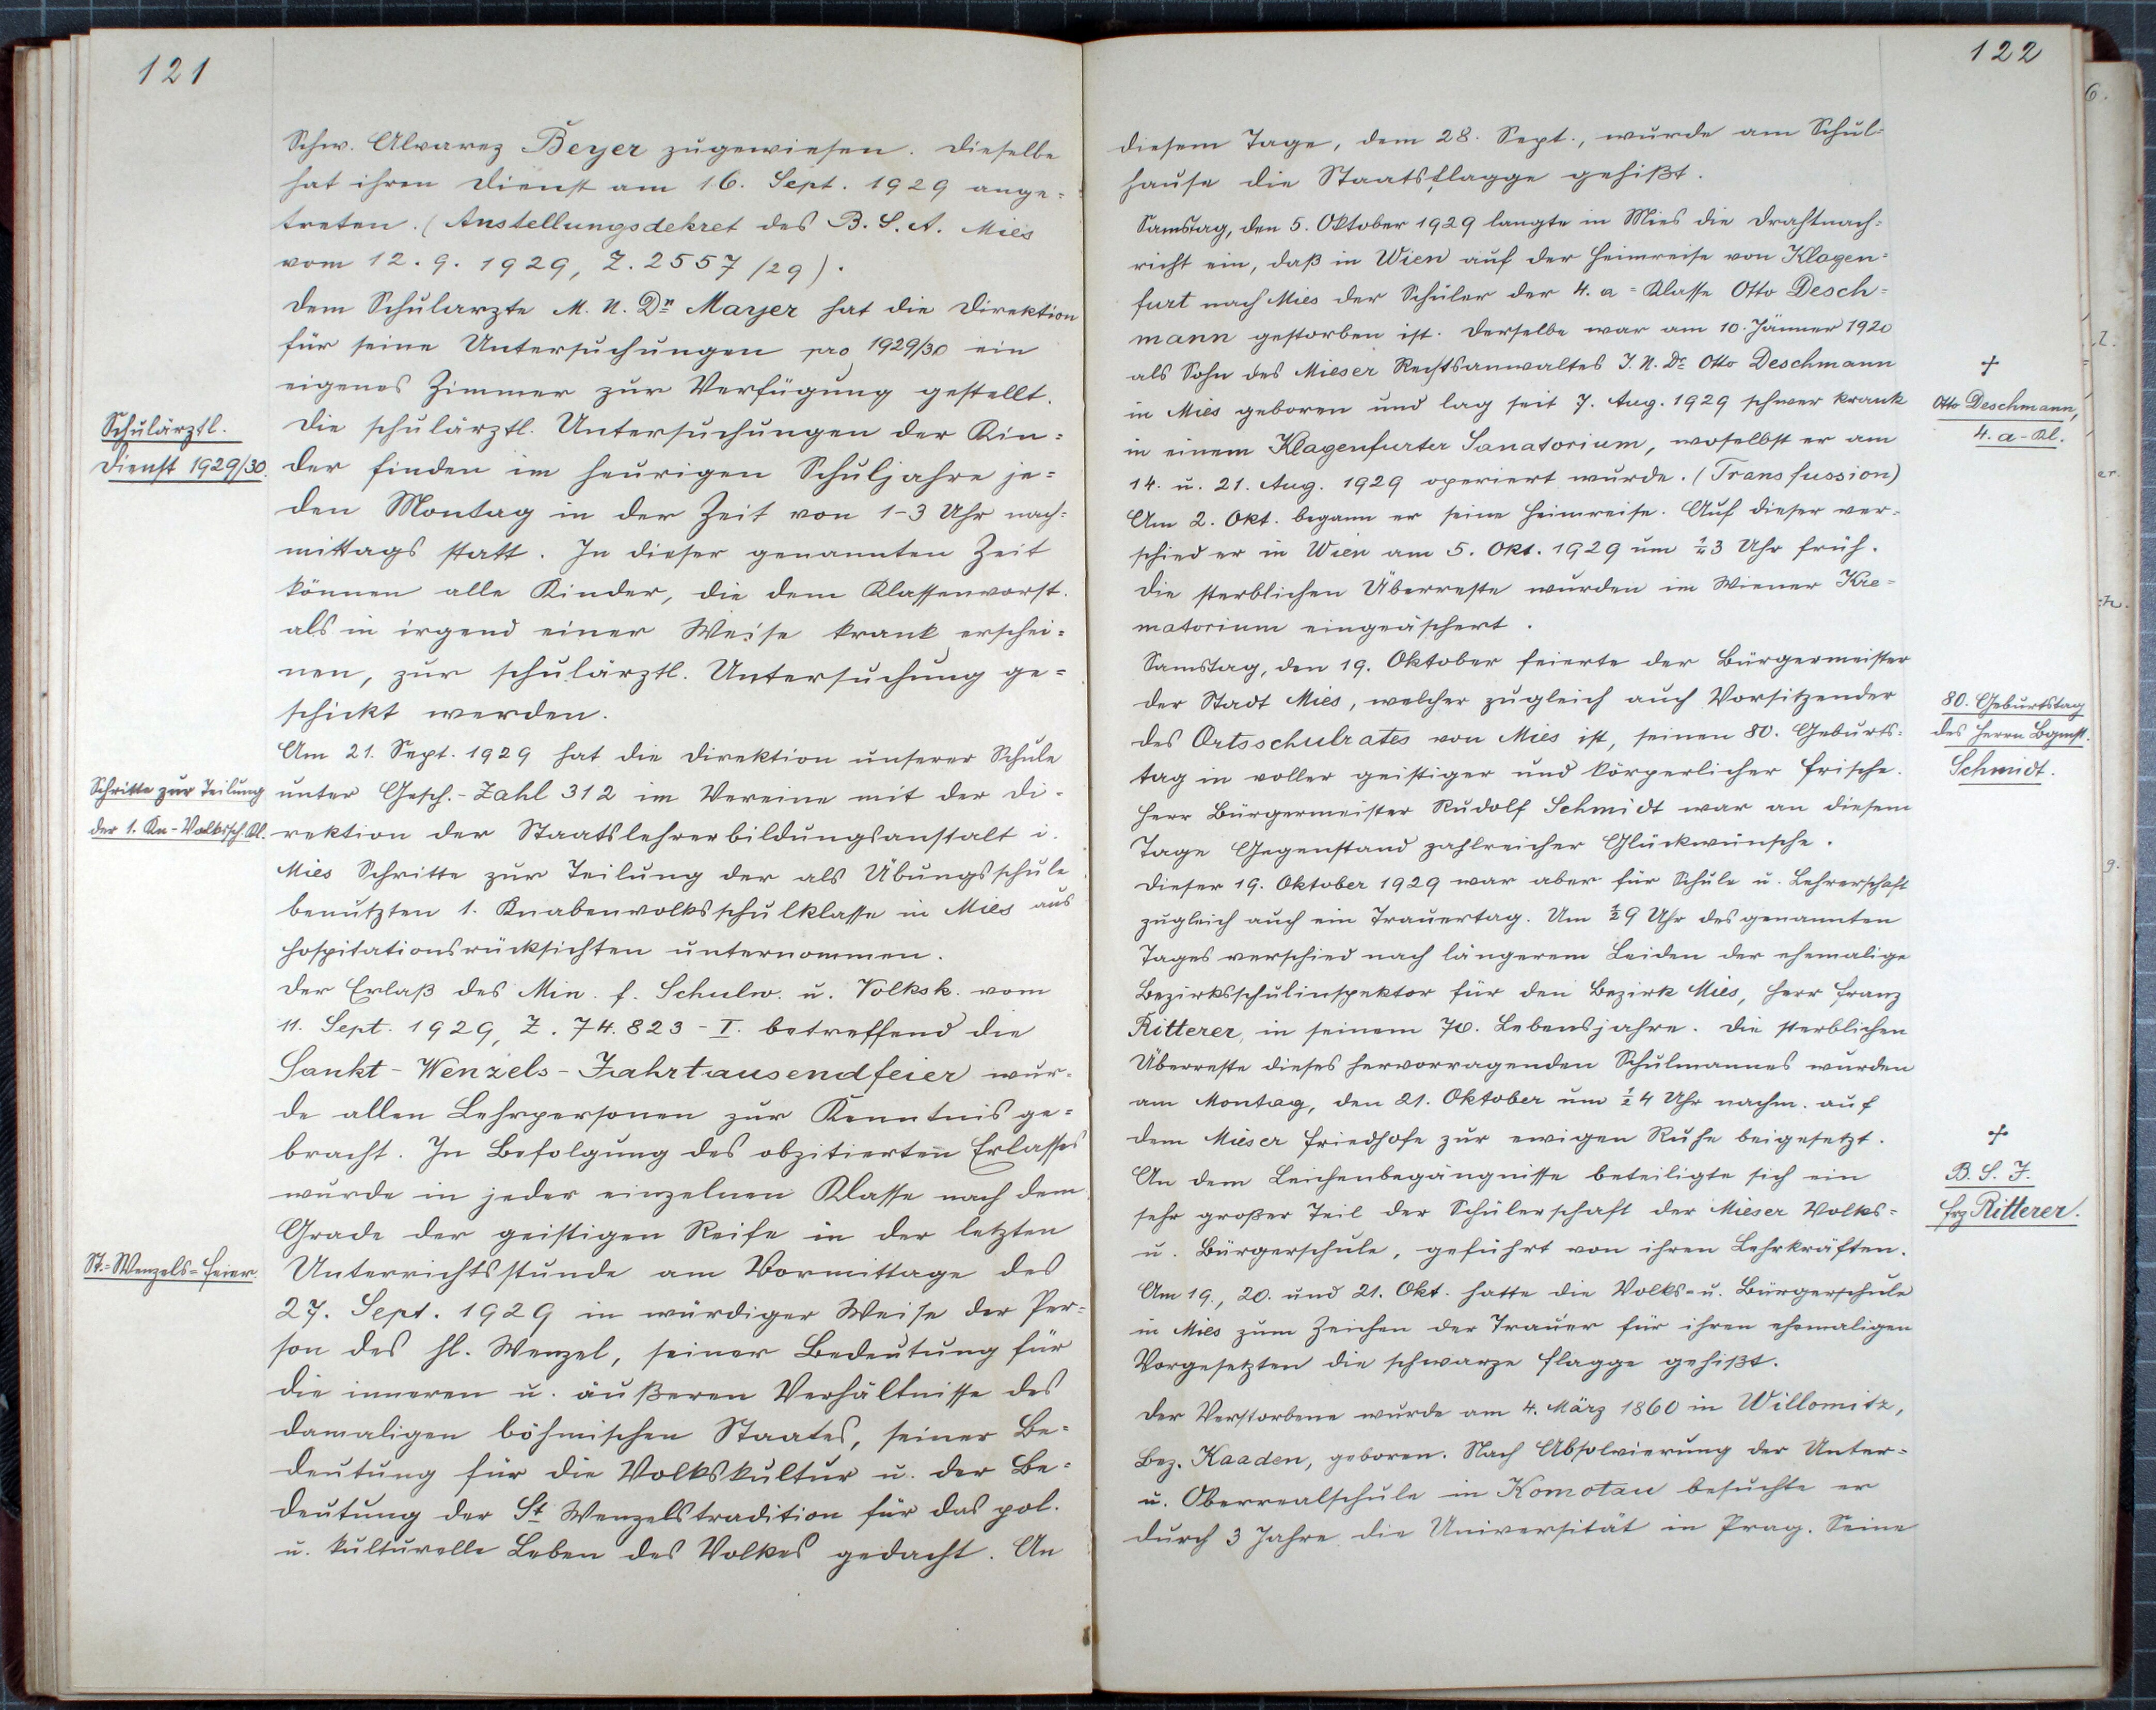 121
Schw. Alvarez Beyer zugewiesen. Dieselbe
hat ihren Dienst am 16. Sept. 1929 ange=
treten. (Anstellungsdekret des B. S. A. Mies
vom 12. 9. 1929, Z. 2557/29).
Dem Schularzte M. U. Dr Mayer hat die Direktion
für seine Untersuchungen pro 1929/30 ein
eigenes Zimmer zur Verfügung gestellt.
Schulärztl.
Dienst 1929/30.
Die schulärztl. Untersuchungen der Kin=
der finden im heurigen Schuljahre je=
den Montag in der Zeit von 1-3 Uhr nach=
mittags statt. In dieser genannten Zeit
können alle Kinder, die dem Klassenvorst.
als in irgend einer Weise krank erschei=
nen, zur schulärztl. Untersuchung ge=
schickt werden.
Schritte zur Teilung
der 1. Kn-Volkssch.Kl.
Am 21. Sept. 1929 hat die Direktion unserer Schule
unter Gesch.-Zahl 312 im Vereine mit der Di-
rektion der Staatslehrerbildungsanstalt i.
Mies Schritte zur Teilung der als Übungsschule
benutzten 1. Knabenvolksschulklasse in Mies aus
Hospitationsrücksichten unternommen.
Der Erlaß des Min. f. Schulw. u. Volksk. vom
11. Sept. 1929, Z. 74.823-I. betreffend die
Sankt-Wenzels-Jahrtausendfeier wur-
de allen Lehrpersonen zur Kenntnis ge=
bracht. In Befolgung des obzitierten Erlasses
wurde in jeder einzelnen Klasse nach dem
Grade der geistigen Reife in der letzten
St.=Wenzels=Feier.
Unterrichtsstunde am Vormittage des
27. Sept. 1929 in würdiger Weise der Per=
son des hl. Wenzel, seiner Bedeutung für
die inneren u. äußeren Verhältnisse des
damaligen böhmischen Staates, seiner Be=
deutung für die Volkskultur u. der Be=
deutung der St Wenzelstradition für das pol.
u. kulturelle Leben des Volkes gedacht. An
122
diesem Tage, dem 28. Sept., wurde am Schul=
hause die Staatsflagge gehißt.
Samstag, den 5. Oktober 1929 langte in Mies die Drahtnach=
richt ein, daß in Wien auf der Heimreise von Klagen=
furt nach Mies der Schüler der 4. a=Klasse Otto Desch=
mann gestorben ist. Derselbe war am 10. Jänner 1920
als Sohn des Mieser Rechtsanwaltes J. U. Dr Otto Deschmann
in Mies geboren und lag seit 7. Aug. 1929 schwer krank
in einem Klagenfurter Sanatorium, woselbst er am
14. u. 21. Aug. 1929 operiert wurde. (Transfussion)
Am 2. Okt. begann er seine Heimreise. Auf dieser ver-
schied er in Wien am 5. Okt. 1929 um ½3 Uhr früh.
Die sterblichen Überreste wurden im Wiener Kre=
matorium eingeäschert.
+
Otto Deschmann,
4. a-Kl.
Samstag, den 19. Oktober feierte der Bürgermeister
der Stadt Mies, welcher zugleich auch Vorsitzender
des Ortsschulrates von Mies ist, seinen 80. Geburts=
tag in voller geistiger und körperlicher Frische.
Herr Bürgermeister Rudolf Schmidt war an diesem
Tage Gegenstand zahlreicher Glückwünsche.
80. Geburtstag
des Herrn Bgmst.
Schmidt.
Dieser 19. Oktober 1929 war aber für Schule u. Lehrerschaft
zugleich auch ein Trauertag. Um ½9 Uhr des genannten
Tages verschied nach längerem Leiden der ehemalige
Bezirksschulinspektor für den Bezirk Mies, Herr Franz
Ritterer, in seinem 70. Lebensjahre. Die sterblichen
Überreste dieses hervorragenden Schulmannes wurden
am Montag, den 21. Oktober um ½4 Uhr nachm. auf
dem Mieser Friedhofe zur ewigen Ruhe beigesetzt.
An dem Leichenbegängnisse beteiligte sich ein
sehr großer Teil der Schülerschaft der Mieser Volks=
u. Bürgerschule, geführt von ihren Lehrkräften.
+
B. S. J.
Frz Ritterer.
Am 19., 20. und 21. Okt. hatte die Volks=u. Bürgerschule
in Mies zum Zeichen der Trauer für ihren ehemaligen
Vorgesetzten die schwarze Flagge gehißt.
Der Verstorbene wurde am 4. März 1860 in Willomitz,
Bez. Kaaden, geboren. Nach Absolvierung der Unter=
u. Oberrealschule in Komotau besuchte er
durch 3 Jahre die Universität in Prag. Seine